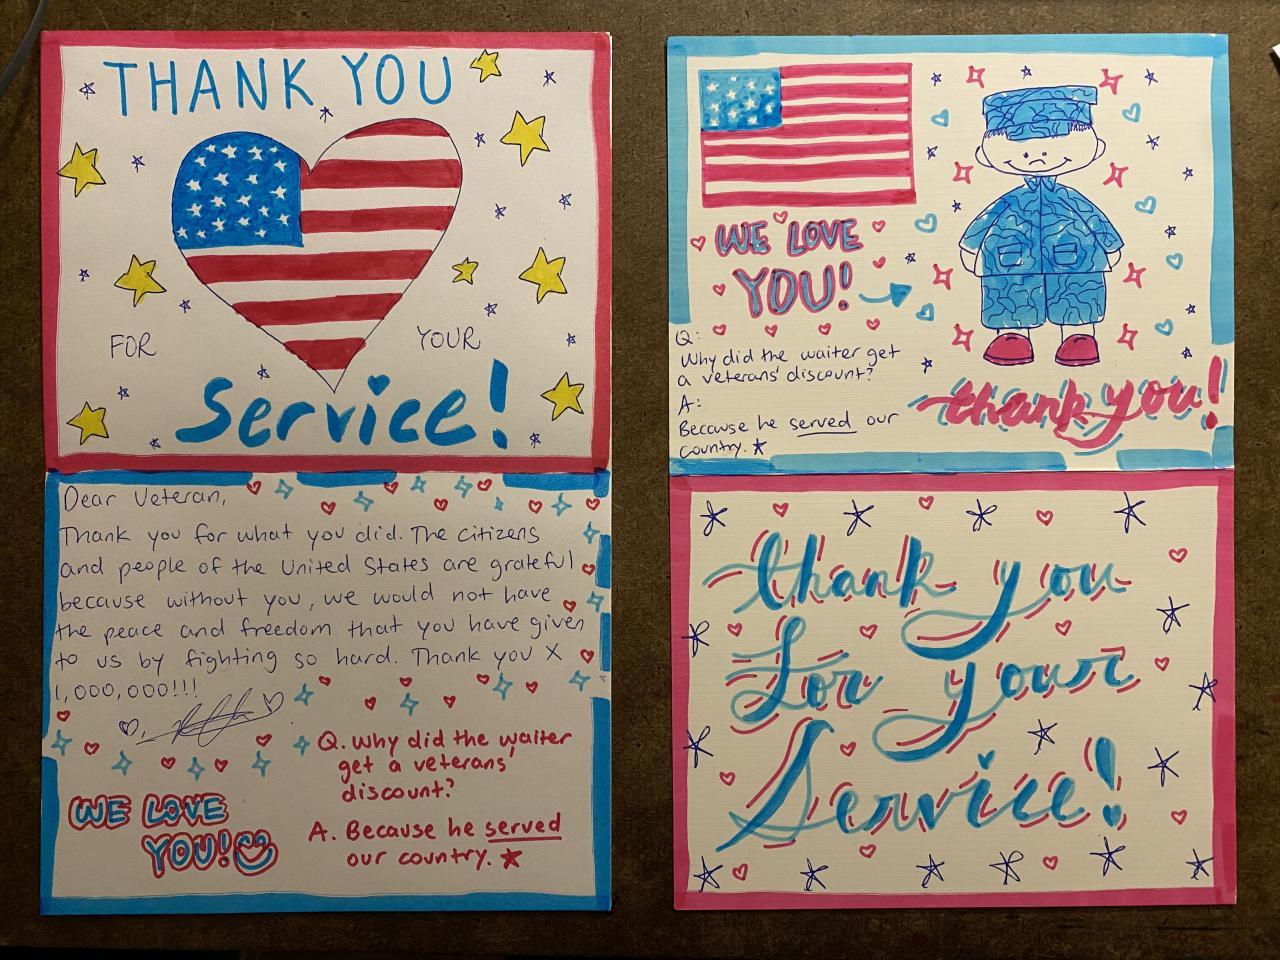 THANK YOU
FOR YOUR
Service!
Dear Veteran,
Thank you for what you did. The citizens
and people of the United States are grateful
because without you, we would not have
the peace and freedom that you have given
to us by fighting so hard. Thank you X
1,000,000!!!
Q. Why did the waiter
get a veterans'
discount?
A. Because he served
our country.
WE LOVE
YOU!
WE LOVE
YOU!
Q:
Why did the waiter get
a veterans' discount?
A:
Because he served our
country.
thank you!
thank you
for your
Service!